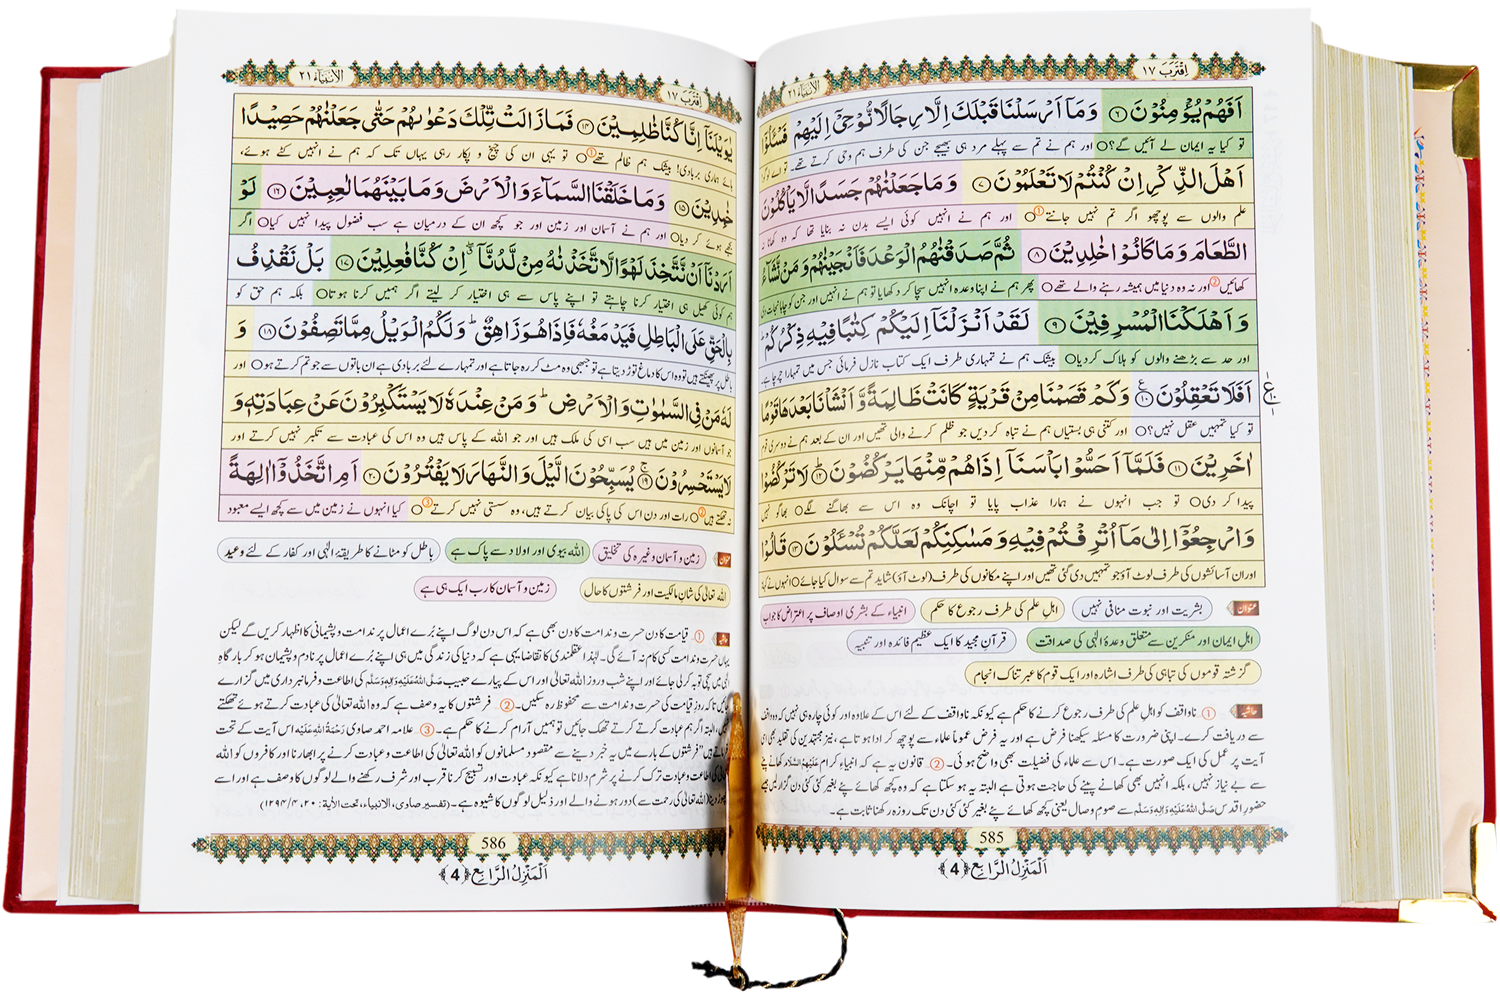 اِقْتَرَبَ ١٧
الْاَنْبِيَآء ٢١
اَفَهُمْ يُؤْمِنُوْنَ ﴿٦﴾ وَمَاۤ اَرْسَلْنَا قَبْلَكَ اِلَّا رِجَالًا نُّوْحِيْۤ اِلَيْهِمْ فَسْـَٔلُوْۤا
تو کیا یہ ایمان لے آئیں گے؟○ اور ہم نے تم سے پہلے مرد ہی بھیجے جن کی طرف ہم وحی کرتے تھے۔ تو اے لوگو
اَهْلَ الذِّكْرِ اِنْ كُنْتُمْ لَا تَعْلَمُوْنَ ﴿٧﴾ وَمَا جَعَلْنٰهُمْ جَسَدًا لَّا يَاْكُلُوْنَ
علم والوں سے پوچھو اگر تم نہیں جانتے①○ اور ہم نے انہیں کوئی ایسے بدن نہ بنایا تھا کہ وہ کھانا نہ
الطَّعَامَ وَمَا كَانُوْا خٰلِدِيْنَ ﴿٨﴾ ثُمَّ صَدَقْنٰهُمُ الْوَعْدَ فَاَنْجَيْنٰهُمْ وَمَنْ نَّشَآءُ
کھائیں② اور نہ وہ دنیا میں ہمیشہ رہنے والے تھے○ پھر ہم نے اپنا وعدہ انہیں سچا کر دکھایا تو ہم نے انہیں اور جن کو چاہا نجات دی
وَاَهْلَكْنَا الْمُسْرِفِيْنَ ﴿٩﴾ لَقَدْ اَنْزَلْنَاۤ اِلَيْكُمْ كِتٰبًا فِيْهِ ذِكْرُكُمْ ؕ
اور حد سے بڑھنے والوں کو ہلاک کردیا○ بیشک ہم نے تمہاری طرف ایک کتاب نازل فرمائی جس میں تمہارا چرچا ہے۔
اَفَلَا تَعْقِلُوْنَ ﴿١٠﴾ وَكَمْ قَصَمْنَا مِنْ قَرْيَةٍ كَانَتْ ظَالِمَةً وَّاَنْشَاْنَا بَعْدَهَا قَوْمًا
تو کیا تمہیں عقل نہیں؟○ اور کتنی ہی بستیاں ہم نے تباہ کردیں جو ظلم کرنے والی تھیں اور ان کے بعد ہم نے دوسری قوم
اٰخَرِيْنَ ﴿١١﴾ فَلَمَّاۤ اَحَسُّوْا بَاْسَنَاۤ اِذَا هُمْ مِّنْهَا يَرْكُضُوْنَ ﴿١٢﴾ لَا تَرْكُضُوْا
پیدا کر دی○ تو جب انہوں نے ہمارا عذاب پایا تو اچانک وہ اس سے بھاگنے لگے○ بھاگو نہیں
وَارْجِعُوْۤا اِلٰى مَاۤ اُتْرِفْتُمْ فِيْهِ وَمَسٰكِنِكُمْ لَعَلَّكُمْ تُسْـَٔلُوْنَ ﴿١٣﴾ قَالُوْا
اور ان آسائشوں کی طرف لوٹ آؤ جو تمہیں دی گئی تھیں اور اپنے مکانوں کی طرف (لوٹ آؤ) شاید تم سے سوال کیا جائے○ انہوں نے کہا:
عنوان بشریت اور نبوت منافی نہیں اہلِ علم کی طرف رجوع کا حکم انبیاء کے بشری اوصاف پر اعتراض کا جواب
اہلِ ایمان اور منکرین سے متعلق وعدۂ الٰہی کی صداقت قرآنِ مجید کا ایک عظیم فائدہ اور تنبیہ
گزشتہ قوموں کی تباہی کی طرف اشارہ اور ایک قوم کا عبرتناک انجام
حاشیہ ①… ناواقف کو اہلِ علم کی طرف رجوع کرنے کا حکم ہے کیونکہ ناواقف کے لئے اس کے علاوہ اور کوئی چارہ ہی نہیں کہ وہ واقف
سے دریافت کرے۔ اپنی ضرورت کا مسئلہ سیکھنا فرض ہے اور یہ فرض عموماً علماء سے پوچھ کر ادا ہوتا ہے، نیز مجتہدین کی تقلید بھی اسی
آیت پر عمل کی ایک صورت ہے۔ اس سے علماء کی فضیلت بھی واضح ہوئی۔ ②… قانون یہ ہے کہ انبیاءِ کرام عَلَيْهِمُ السَّلَام کھانے پینے
سے بے نیاز نہیں، بلکہ انہیں بھی کھانے پینے کی حاجت ہوتی ہے البتہ یہ ہوسکتا ہے کہ وہ کچھ کھائے پئے بغیر کئی کئی دن گزار لیں جیسے
حضورِ اقدس صَلَّى اللهُ عَلَيْهِ وَاٰلِهٖ وَسَلَّم سے صومِ وصال یعنی کچھ کھائے پئے بغیر کئی کئی دن تک روزہ رکھنا ثابت ہے۔
585
اَلْمَنْزِلُ الرَّابِع ﴿4﴾
اِقْتَرَبَ ١٧
الْاَنْبِيَآء ٢١
يٰوَيْلَنَاۤ اِنَّا كُنَّا ظٰلِمِيْنَ ﴿١٤﴾ فَمَا زَالَتْ تِّلْكَ دَعْوٰىهُمْ حَتّٰى جَعَلْنٰهُمْ حَصِيْدًا
ہائے ہماری بربادی! بیشک ہم ظالم تھے①○ تو یہی ان کی چیخ و پکار رہی یہاں تک کہ ہم نے انہیں کٹے ہوئے،
خٰمِدِيْنَ ﴿١٥﴾ وَمَا خَلَقْنَا السَّمَآءَ وَالْاَرْضَ وَمَا بَيْنَهُمَا لٰعِبِيْنَ ﴿١٦﴾ لَوْ
بجھے ہوئے کر دیا○ اور ہم نے آسمان اور زمین اور جو کچھ ان کے درمیان ہے سب فضول پیدا نہیں کیا○ اگر
اَرَدْنَاۤ اَنْ نَّتَّخِذَ لَهْوًا لَّاتَّخَذْنٰهُ مِنْ لَّدُنَّاۤ ۖۗ اِنْ كُنَّا فٰعِلِيْنَ ﴿١٧﴾ بَلْ نَقْذِفُ
ہم کوئی کھیل ہی اختیار کرنا چاہتے تو اپنے پاس سے ہی اختیار کر لیتے اگر ہمیں کرنا ہوتا○ بلکہ ہم حق کو
بِالْحَقِّ عَلَى الْبَاطِلِ فَيَدْمَغُهٗ فَاِذَا هُوَ زَاهِقٌ ؕ وَلَكُمُ الْوَيْلُ مِمَّا تَصِفُوْنَ ﴿١٨﴾ وَ
باطل پر پھینکتے ہیں تو وہ اس کا دماغ توڑ دیتا ہے تو جبھی وہ مٹ کر رہ جاتا ہے اور تمہارے لئے بربادی ہے ان باتوں سے جو تم کرتے ہو○ اور
لَهٗ مَنْ فِي السَّمٰوٰتِ وَالْاَرْضِ ؕ وَمَنْ عِنْدَهٗ لَا يَسْتَكْبِرُوْنَ عَنْ عِبَادَتِهٖ وَ
جو آسمانوں اور زمین میں ہیں سب اسی کی ملک ہیں اور جو اللہ کے پاس ہیں وہ اس کی عبادت سے تکبر نہیں کرتے اور
لَا يَسْتَحْسِرُوْنَ ﴿١٩﴾ يُسَبِّحُوْنَ الَّيْلَ وَالنَّهَارَ لَا يَفْتُرُوْنَ ﴿٢٠﴾ اَمِ اتَّخَذُوْۤا اٰلِهَةً
نہ تھکتے ہیں②○ رات اور دن اس کی پاکی بیان کرتے ہیں، وہ سستی نہیں کرتے③○ کیا انہوں نے زمین میں سے کچھ ایسے معبود
عنوان زمین و آسمان وغیرہ کی تخلیق اللہ بیوی اور اولاد سے پاک ہے باطل کو مٹانے کا طریقۂ الٰہی اور کفار کے لئے وعید
اللہ تعالیٰ کی شانِ مالکیت اور فرشتوں کا حال زمین و آسمان کا رب ایک ہی ہے
حاشیہ ①… قیامت کا دن حسرت و ندامت کا دن بھی ہے کہ اس دن لوگ اپنے بُرے اعمال پر ندامت و پشیمانی کا اظہار کریں گے لیکن
یہاں حسرت و ندامت کسی کام نہ آئے گی۔ لہٰذا عقلمندی کا تقاضا یہی ہے کہ دنیا کی زندگی میں ہی اپنے بُرے اعمال پر نادم و پشیمان ہو کر بارگاہِ
الٰہی میں سچی توبہ کر لی جائے اور اپنے شب و روز اللہ تعالیٰ اور اس کے پیارے حبیب صَلَّى اللهُ عَلَيْهِ وَاٰلِهٖ وَسَلَّم کی اطاعت و فرمانبرداری میں گزارے
جائیں تاکہ روزِ قیامت کی حسرت و ندامت سے محفوظ رہ سکیں۔ ②… فرشتوں کا یہ وصف ہے کہ وہ اللہ تعالیٰ کی عبادت کرتے ہوئے تھکتے
نہیں، البتہ اگر ہم عبادت کرتے کرتے تھک جائیں تو ہمیں آرام کرنے کا حکم ہے۔ ③… علامہ احمد صاوی رَحْمَةُ اللهِ عَلَيْه اس آیت کے تحت
فرماتے ہیں ”فرشتوں کے بارے میں یہ خبر دینے سے مقصود مسلمانوں کو اللہ تعالیٰ کی اطاعت و عبادت کرنے پر ابھارنا اور کافروں کو اللہ
تعالیٰ کی اطاعت و عبادت ترک کرنے پر شرم دلانا ہے کیونکہ عبادت اور تسبیح کرنا قرب اور شرف رکھنے والے لوگوں کا وصف ہے اور اسے
چھوڑ دینا (اللہ تعالیٰ کی رحمت سے) دور ہونے والے اور ذلیل لوگوں کا شیوہ ہے۔ (تفسیر صاوی، الانبیاء، تحت الآیة: ٢٠، ١٢٩٤/٤)
586
اَلْمَنْزِلُ الرَّابِع ﴿4﴾